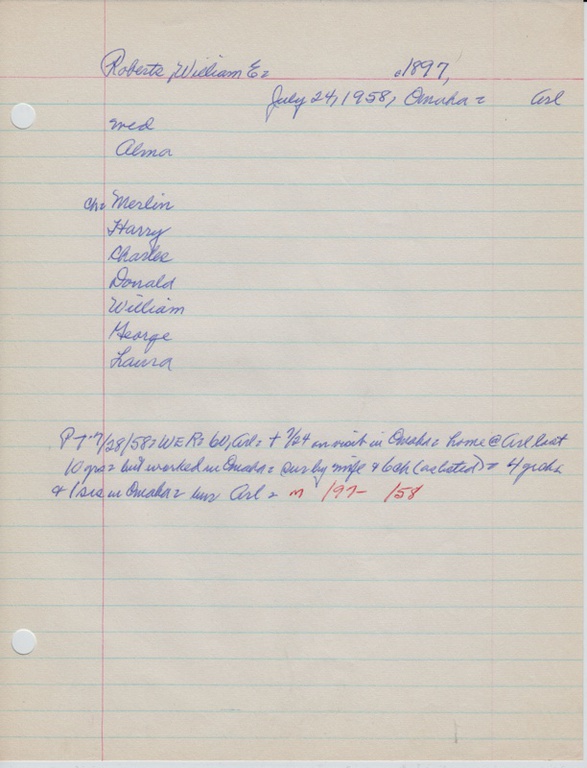 Roberts, William E= c1897,
July 24, 1958, Omaha = Arl
wed
Alma
ch= Merlin
Harry
Charles
Donald
William
George
Laura
PT 7/28/58= WER= 60, Arl= + 7/24 on visit in Omaha= home @ Arl last
10 yrs= but worked in Omaha= sur by wife & 6 ch (as listed) = 4 grch
& 1 sis in Omaha= bur Arl = m /97- /58